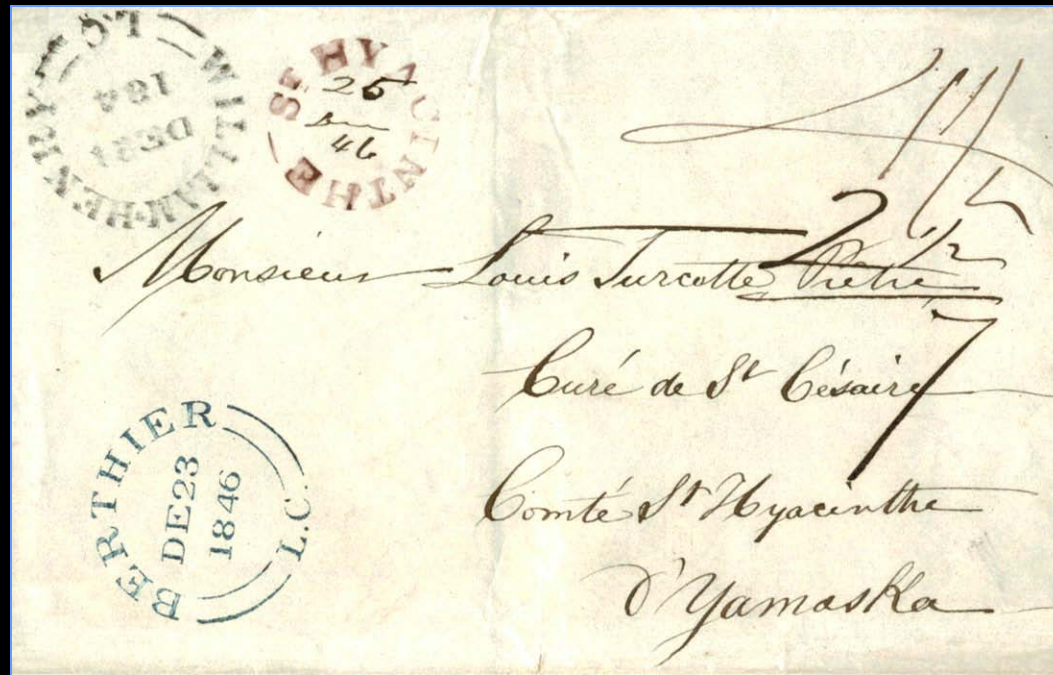 WILLIAM-HENRY L.C.
DE 24
184
ST HYACINTHE
25
46
4 1/2
2 1/2
7
Monsieur Louis Turcotte Prêtre
Curé de St Césaire
Comté St Hyacinthe
d'Yamaska
BERTHIER L.C.
DE 23
1846